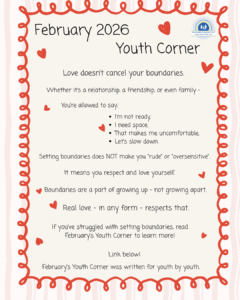 February 2026
Youth Corner
Love doesn't cancel your boundaries.
Whether it's a relationship, a friendship, or even family -
You're allowed to say:
• I'm not ready,
• I need space,
• That makes me uncomfortable,
• Let's slow down
Setting boundaries does NOT make you "rude" or "oversensitive".
It means you respect and love yourself.
Boundaries are a part of growing up - not growing apart.
Real love - in any form - respects that.
If you've struggled with setting boundaries, read
February's Youth Corner to learn more!
Link below!
February's Youth Corner was written for youth by youth.